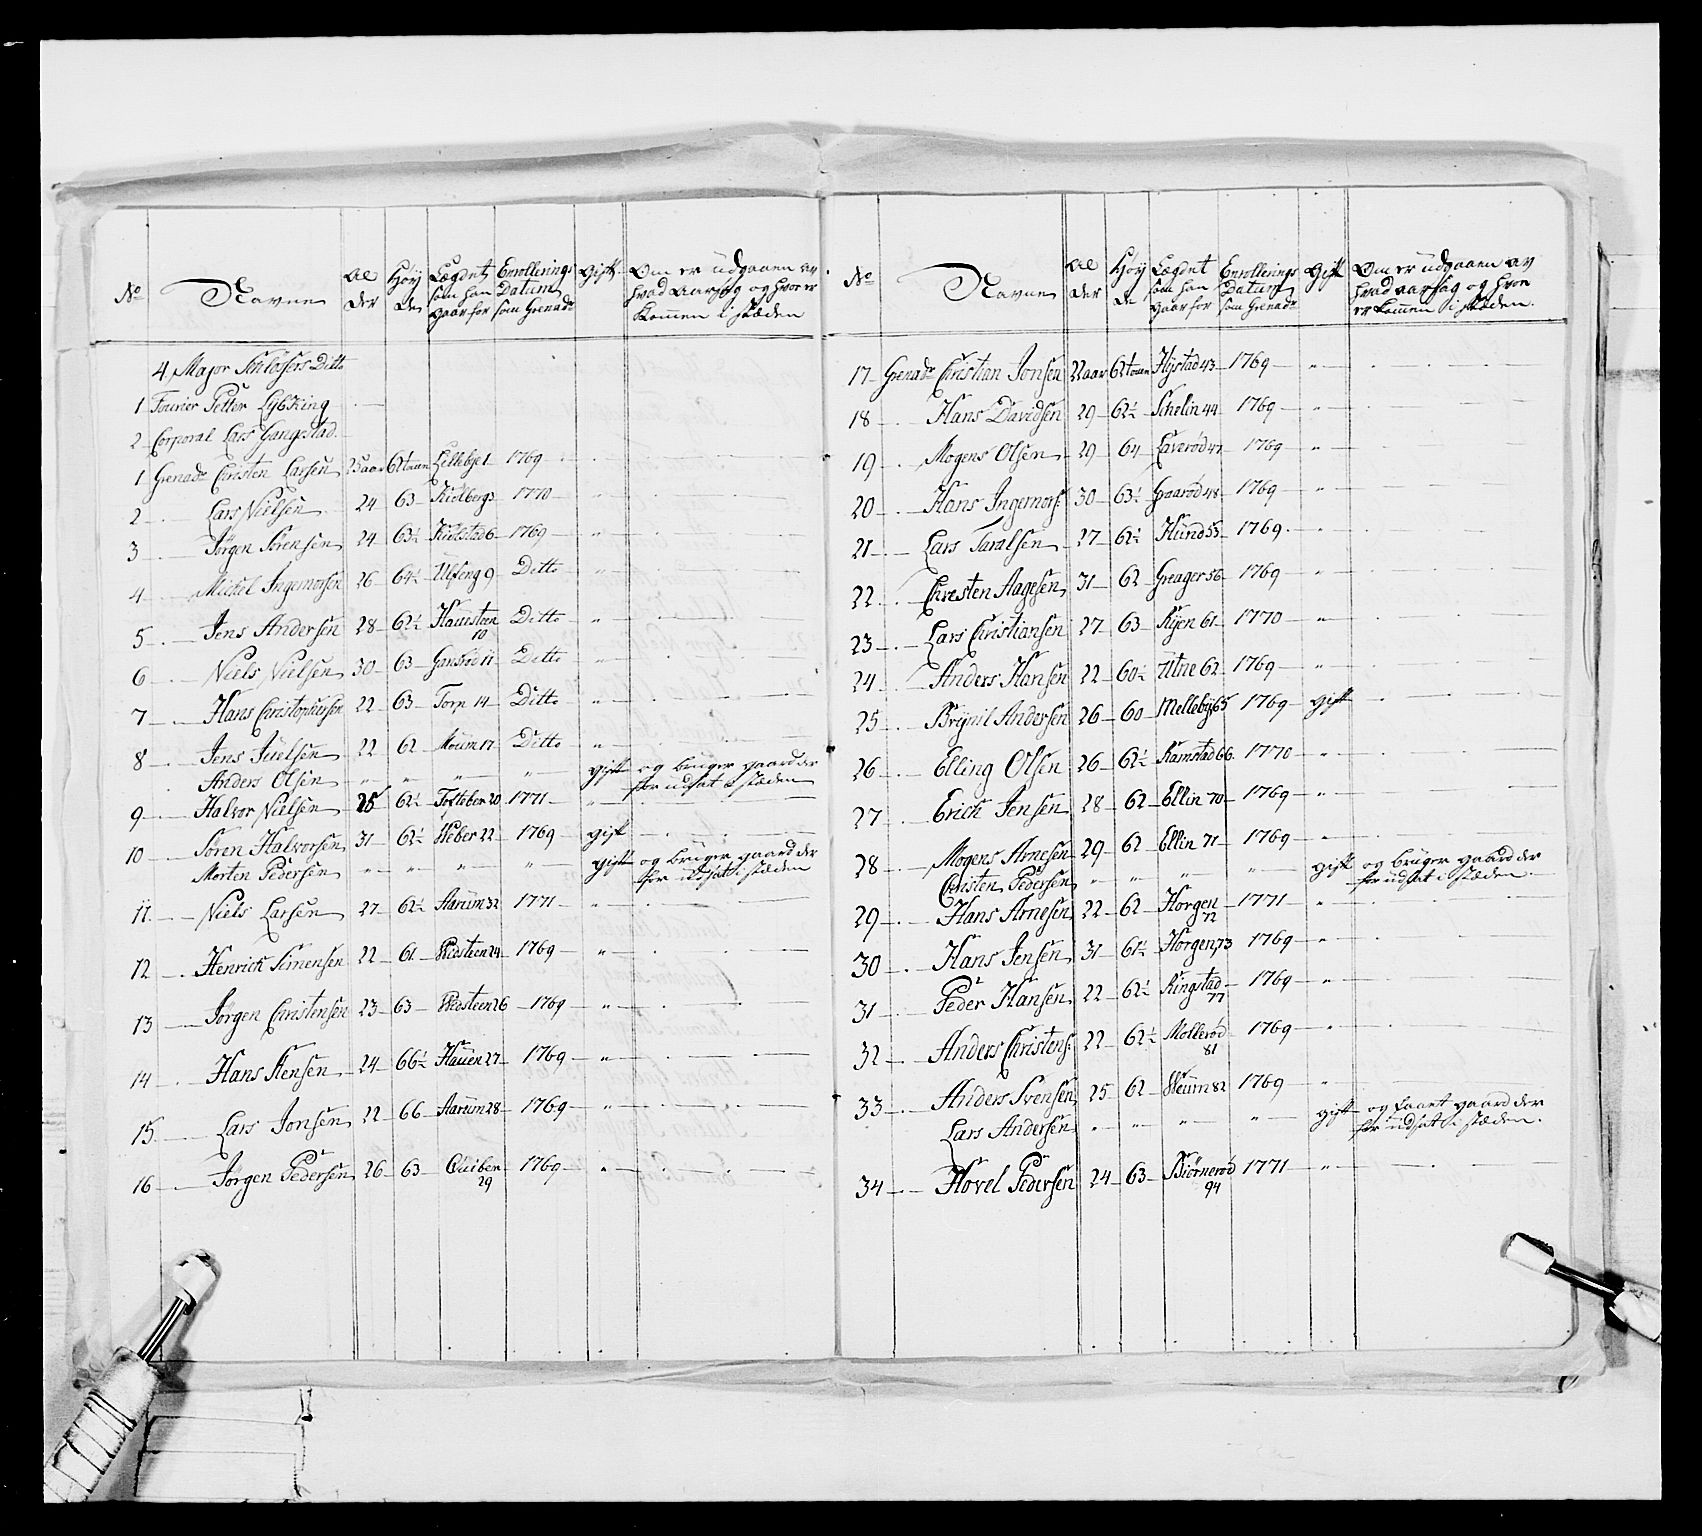 No Navne Alder Høyde Lægdet som han gaar for Enrollerings Datum som Grenadr Gift Om er udgaaen av hvad aarsag og hvor er kommen i stæden
4 Major Schlösers Ditto
1 Fourier Petter Lybking
2 Corporal Lars Gangestad
1 Grenadr Christen Larsen 25 aar 62 tomm Lillebye 1 1769
2 Lars Nielsen 24 63 1770 "
3 Jørgen Sørensen 24 63½ 6 1769 "
4 Michel Ingemorsen 26 64½ Ulfeng 9 Ditto "
5 Jens Andersen 28 62½ Hauesteen 10 Ditto "
6 Niels Nielsen 30 63 Gansrød 11 Ditto "
7 Hans Christophersen 22 63 Torp 14 Ditto "
8 Jens Juelsen 22 62 Moum 17 Ditto "
Anders Olsen " " " " gift og bruger gaard der for udsat i stæden
9 Halvor Nielsen 25 62½ Tofteber 20 1771 "
10 Søren Halvorsen 31 62½ Weber 22 1769 gift
Morten Pedersen " " " " gift og bruger gaard der for udsat i stæden
11 Niels Larsen 27 62½ Aarum 32 1771 "
12 Henrich Simensen 22 61 Wedsteen 24 1769 "
13 Jørgen Christensen 23 63 Wedsteen 26 1769 "
14 Hans Stensen 24 66½ Hauen 27 1769 "
15 Lars Jonsen 22 66 Aarum 28 1769 "
16 Jørgen Pedersen 26 63 Quiber 29 1769 "
No Navne Alder Høyde Lægdet som han gaar for Enrollerings Datum som Grenadr Gift Om er udgaaen av hvad aarsag og hvor er kommen i stæden.
17 Grenadr Christian Jonsen 22 aar 62 tomm Hystad 43 1769 "
18 Hans Davidsen 29 62½ Schelin 44 1769 "
19 Mogens Olsen 29 64 Laverød 47 1769 "
20 Hans Ingemors: 30 63½ Gaarød 48 1769 "
21 Lars Taralsen 27 62½ Hund 53 1769 "
22 Christen Aagesen 31 62 Greager 56 1769 "
23 Lars Christiansen 27 63 Ryen 61 1770 "
24 Anders Hansen 22 60½ Utne 62 1769 "
25 Brynil Andersen 26 60 Melleby 65 1769 gift
26 Elling Olsen 26 62½ Ramstad 66 1770 "
27 Erich Jensen 28 62 Ellin 70 1769 "
28 Mogens Arnesen 29 62 Ellin 71 1769 "
Christen Pedersen " " " " gift og bruger gaard der for udsat i stæden.
29 Hans Arnesen 22 62 Horgen 72 1771 "
30 Hans Jensen 31 61½ Horgen 73 1769 "
31 Peder Hansen 22 62½ Ringstad 77 1769 "
32 Anders Christens: 22 62½ Mollerød 81 1769 "
33 Anders Svensen 25 62 Weum 82 1769 "
Lars Andersen " " " " gift og faaet gaard der for udsat i stæden.
34 Hovel Pedersen 24 63 Biørnerød 94 1771 "